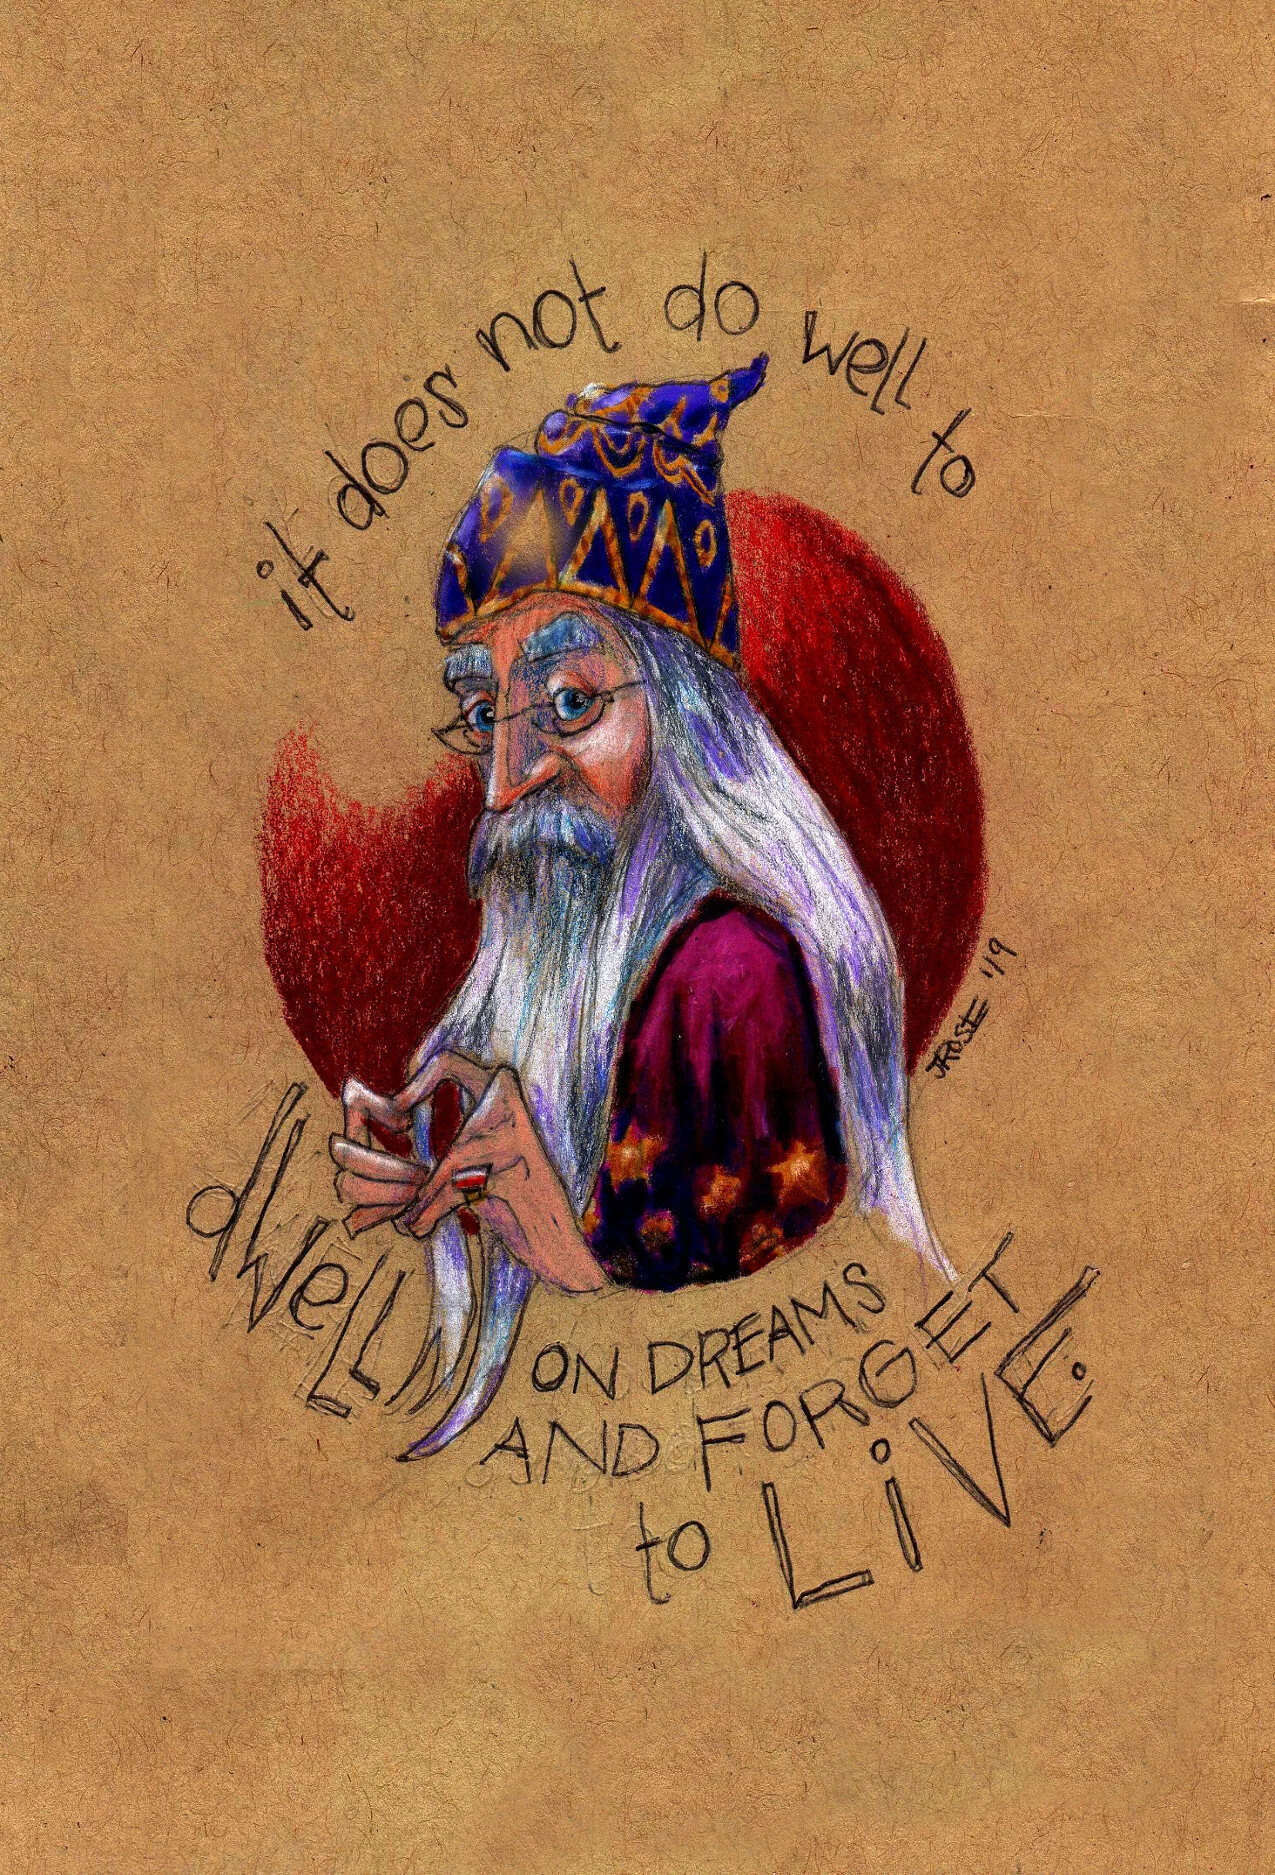 it does not do well to
dwell
ON DREAMS
AND FORGET
to LiVE.
JROSE '19